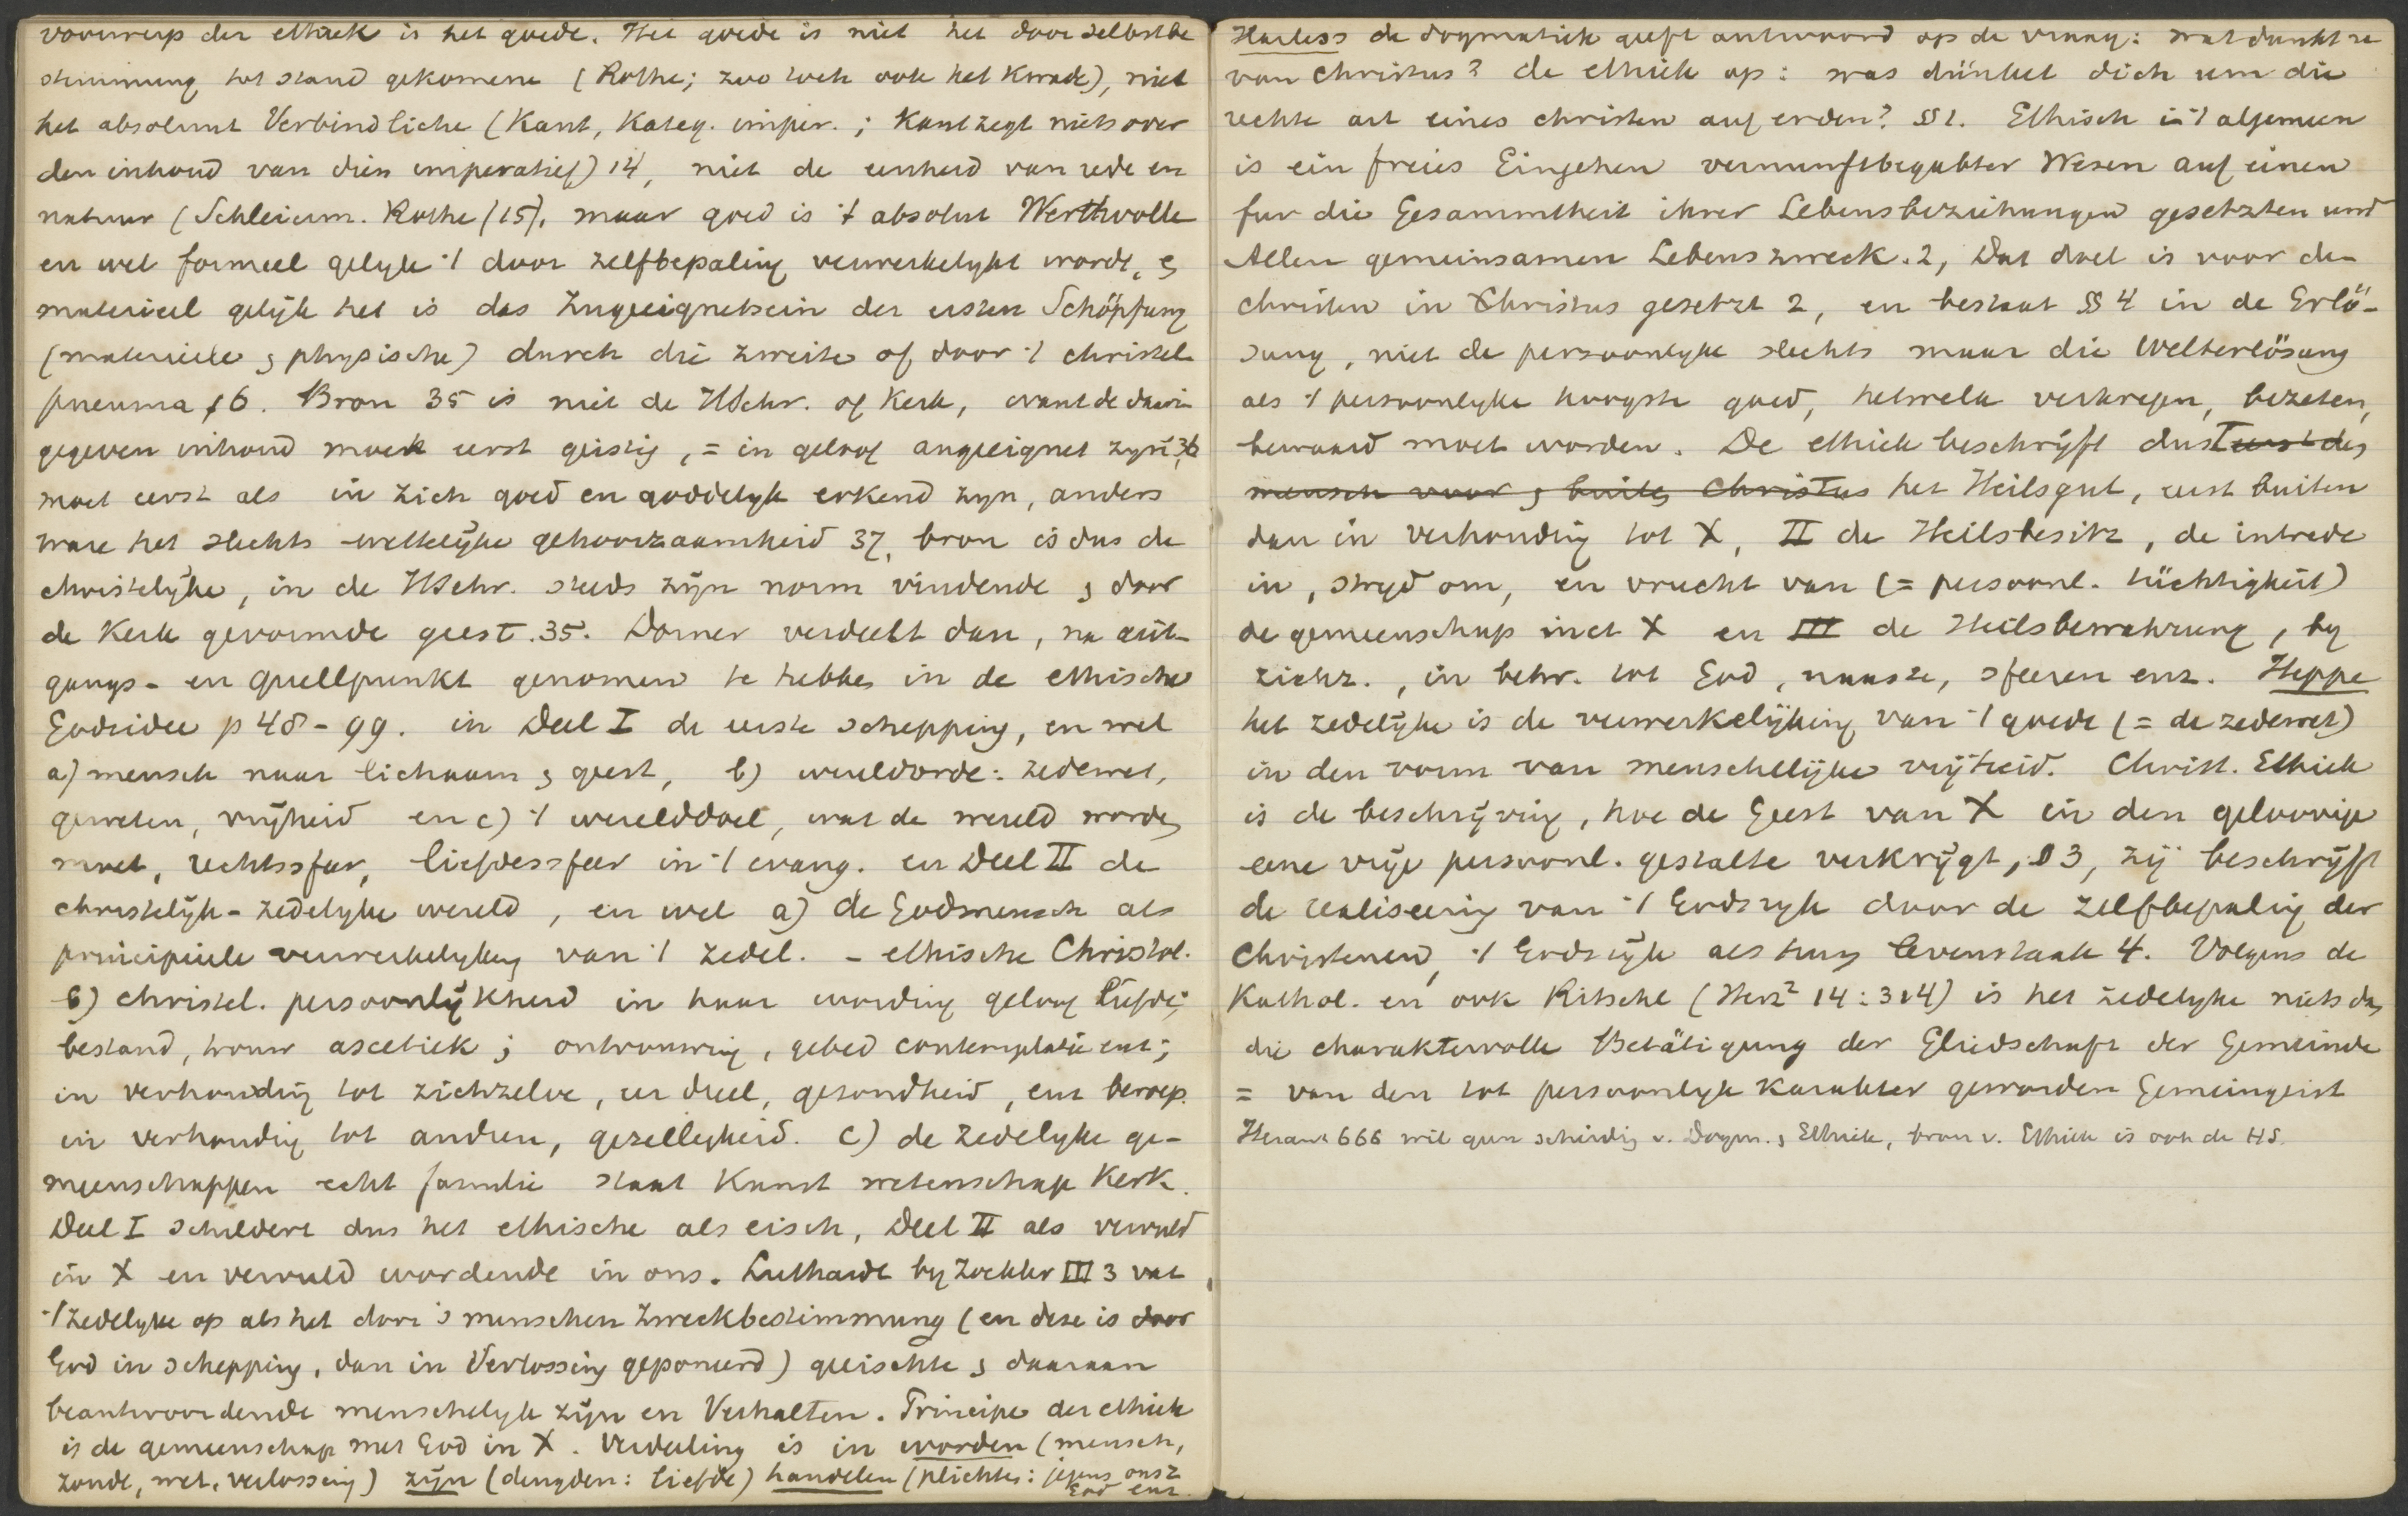 voorwerp der ethiek is het goede. Het goede is niet het door selbstbe
stimmung tot stand gekomene (Rothe; zoo toch ook het kwade), niet
het absoluut Verbindliche (Kant, Kateg. imper.; Kant zegt niets over
den inhoud van dien imperatief) 14, niet de eenheid van rede en
natuur (Schleierm. Rothe (15), maar goed is 't absolut Werthvolle
en wel formeel gelyk 't door zelfbepaling verwerkelykt wordt, &
materieel gelijk het is das Zugeeignetsein der ersten Schöpfung
(materiele & physische) durch die zweite of door 't christel.
pneuma 16. Bron 35 is niet de HSchr. of Kerk, want de daarin
gegeven inhoud moet eerst geistig, = in geloof angeeignet zijn 36
moet eerst als in zich goed en goddelyk erkend zyn, anders
ware het slechts wettelyke gehoorzaamheid 37, bron is dus de
christelijke, in de HSchr. steeds zijn norm vindende & door
de Kerk gevormde geest. 35. Dorner verdeelt dan, na uit-
gangs- en quellpunkt genomen te hebben in de ethische
Godsidee p 48-99. in Deel I de eerste schepping, en wel
a) mensch naar lichaam & geest, b) wereldorde: zedewet,
geweten, vrijheid en c) 't werelddoel, wat de wereld worden
moet, rechtssfeer, liefdessfeer in 't evang. en Deel II de
christelijk-zedelyke wereld, en wel a) de Godmensch als
principiele verwerkelyking van 't zedel. - ethische Christol.
b) christel. persoonlijkheid in haar wording geloof liefde;
bestand, trouw ascetiek; ontrouwing, gebed contemplatie enz;
in verhouding tot zichzelve, eer deel, gezondheid, enz beroep.
in verhouding tot andren, gezelligheid. C) de zedelyke ge-
meenschappen echt familie staat Kunst wetenschap Kerk.
Deel I schildert dus het ethische als eisch, Deel II als vervuld
in X en vervuld wordende in ons. Luthardt by Zockler III 3 vat
't zedelyke op als het door 's menschen Zweckbestimmung (en deze is door
God in schepping, dan in Verlossing geponeerd) geeischte & daaraan
beantwoordende menschelyk zijn en Verhalten. Principe der ethiek
is de gemeenschap met God in X. Verdeeling is in worden (mensch,
zonde, wet, verlossing) zijn (deugden: liefde) handelen (plichten: jegens onsz
God enz.
Harless de dogmatiek geeft antwoord op de vraag: wat dunkt u
van Christus? de ethiek op: was dünket dich um die
rechte art eines christen auf erden? §§1. Ethisch in 't algemeen
is ein freies Eingehen vernunftbegabter Wesen auf einen
fur die Gesammtheit ihrer Lebensbeziehungen gesetzten und
Allen gemeinsamen Lebenszweck. 2, Dat doel is voor den
christen in Christus gesetzt 2, en bestaat §§ 4 in de Erlö-
sung, niet de persoonlyke slechts maar die Welterlösung
als 't persoonlyke hoogste goed, hetwelk verkregen, bezeten,
bewaard moet worden. De ethiek beschrijft dus I eerst den
mensch voor & buiten Christus het Heilsgut, eerst buiten
dan in verhouding tot X, II de Heilsbesitz, de intrede
in, stryd om, en vrucht van (= persoonl. tüchtigkeit)
de gemeenschap met X en III de Heilsbewahrung, by
zichz., in betr. tot God, naaste, sfeeren enz. Heppe
het zedelijke is de verwerkelijking van 't goede (= de zedewet)
in den vorm van menschelijke vrijheid. Christ. Ethiek
is de beschrijving, hoe de Geest van X in den geloovige
eene vrije persoonl. gestalte verkrijgt, § 3, zij beschrijft
de realiseering van 't Godsryk door de zelfbepaling der
Christenen, 't Godsrijk als hun levenstaak 4. Volgens de
Kathol. en ook Ritschl (Herz² 14:314) is het zedelyke niets dan
die charaktervolle Betätigung der Gliedschaft der Gemeinde
= van den tot persoonlyk karakter geworden Gemeingeist
666 wil geen scheiding v. Dogm. & Ethiek, bron v. Ethiek is ook de HS.